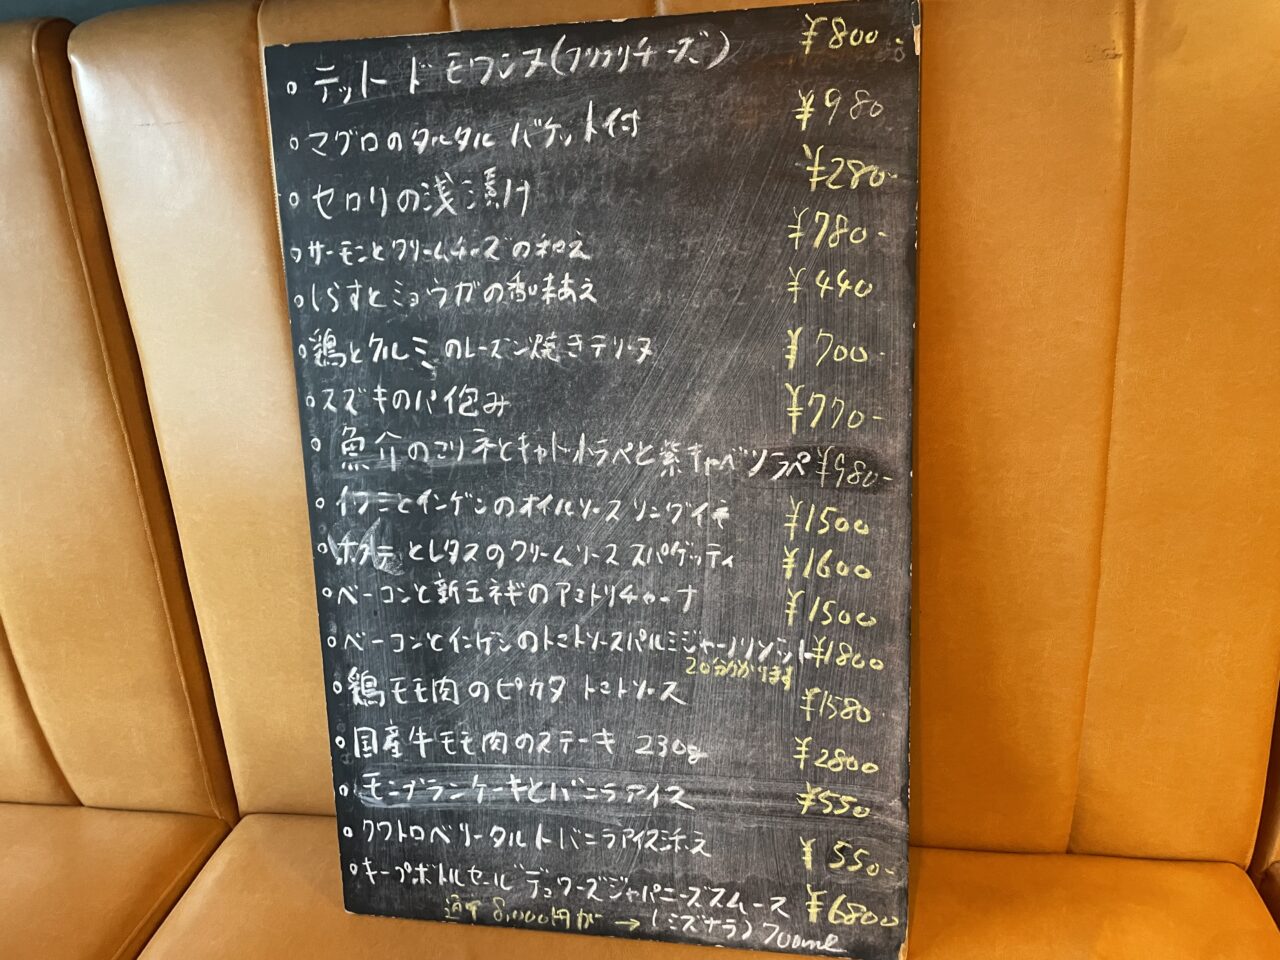 ○テット ド モワンヌ(フリフリチーズ) ¥800-
○マグロのタルタル バケット付 ¥980
○セロリの浅漬け ¥280-
○サーモンとクリームチーズの和え ¥780-
○しらすとミョウガの香味あえ ¥440
○鶏とクルミのレーズン焼きテリーヌ ¥700-
○スズキのパイ包み ¥770-
○魚介のマリネとキャロットラペと紫キャベツラペ ¥980-
○イワシとインゲンのオイルソース リングイネ ¥1500
○ホタテとレタスのクリームソース スパゲッティ ¥1600
○ベーコンと新玉ネギのアマトリチャーナ ¥1500
○ベーコンとインゲンのトマトソースパルミジャーノリゾット ¥1800
20分かかります
○鶏モモ肉のピカタ トマトソース ¥1580
○国産牛モモ肉のステーキ 230g ¥2800
○モンブランケーキとバニラアイス ¥550
○クワトロベリータルト バニラアイス添え ¥550-
○キープボトルセール デュワーズジャパニーズスムース ¥6800
通常8,000円が → (ミズナラ) 700ml